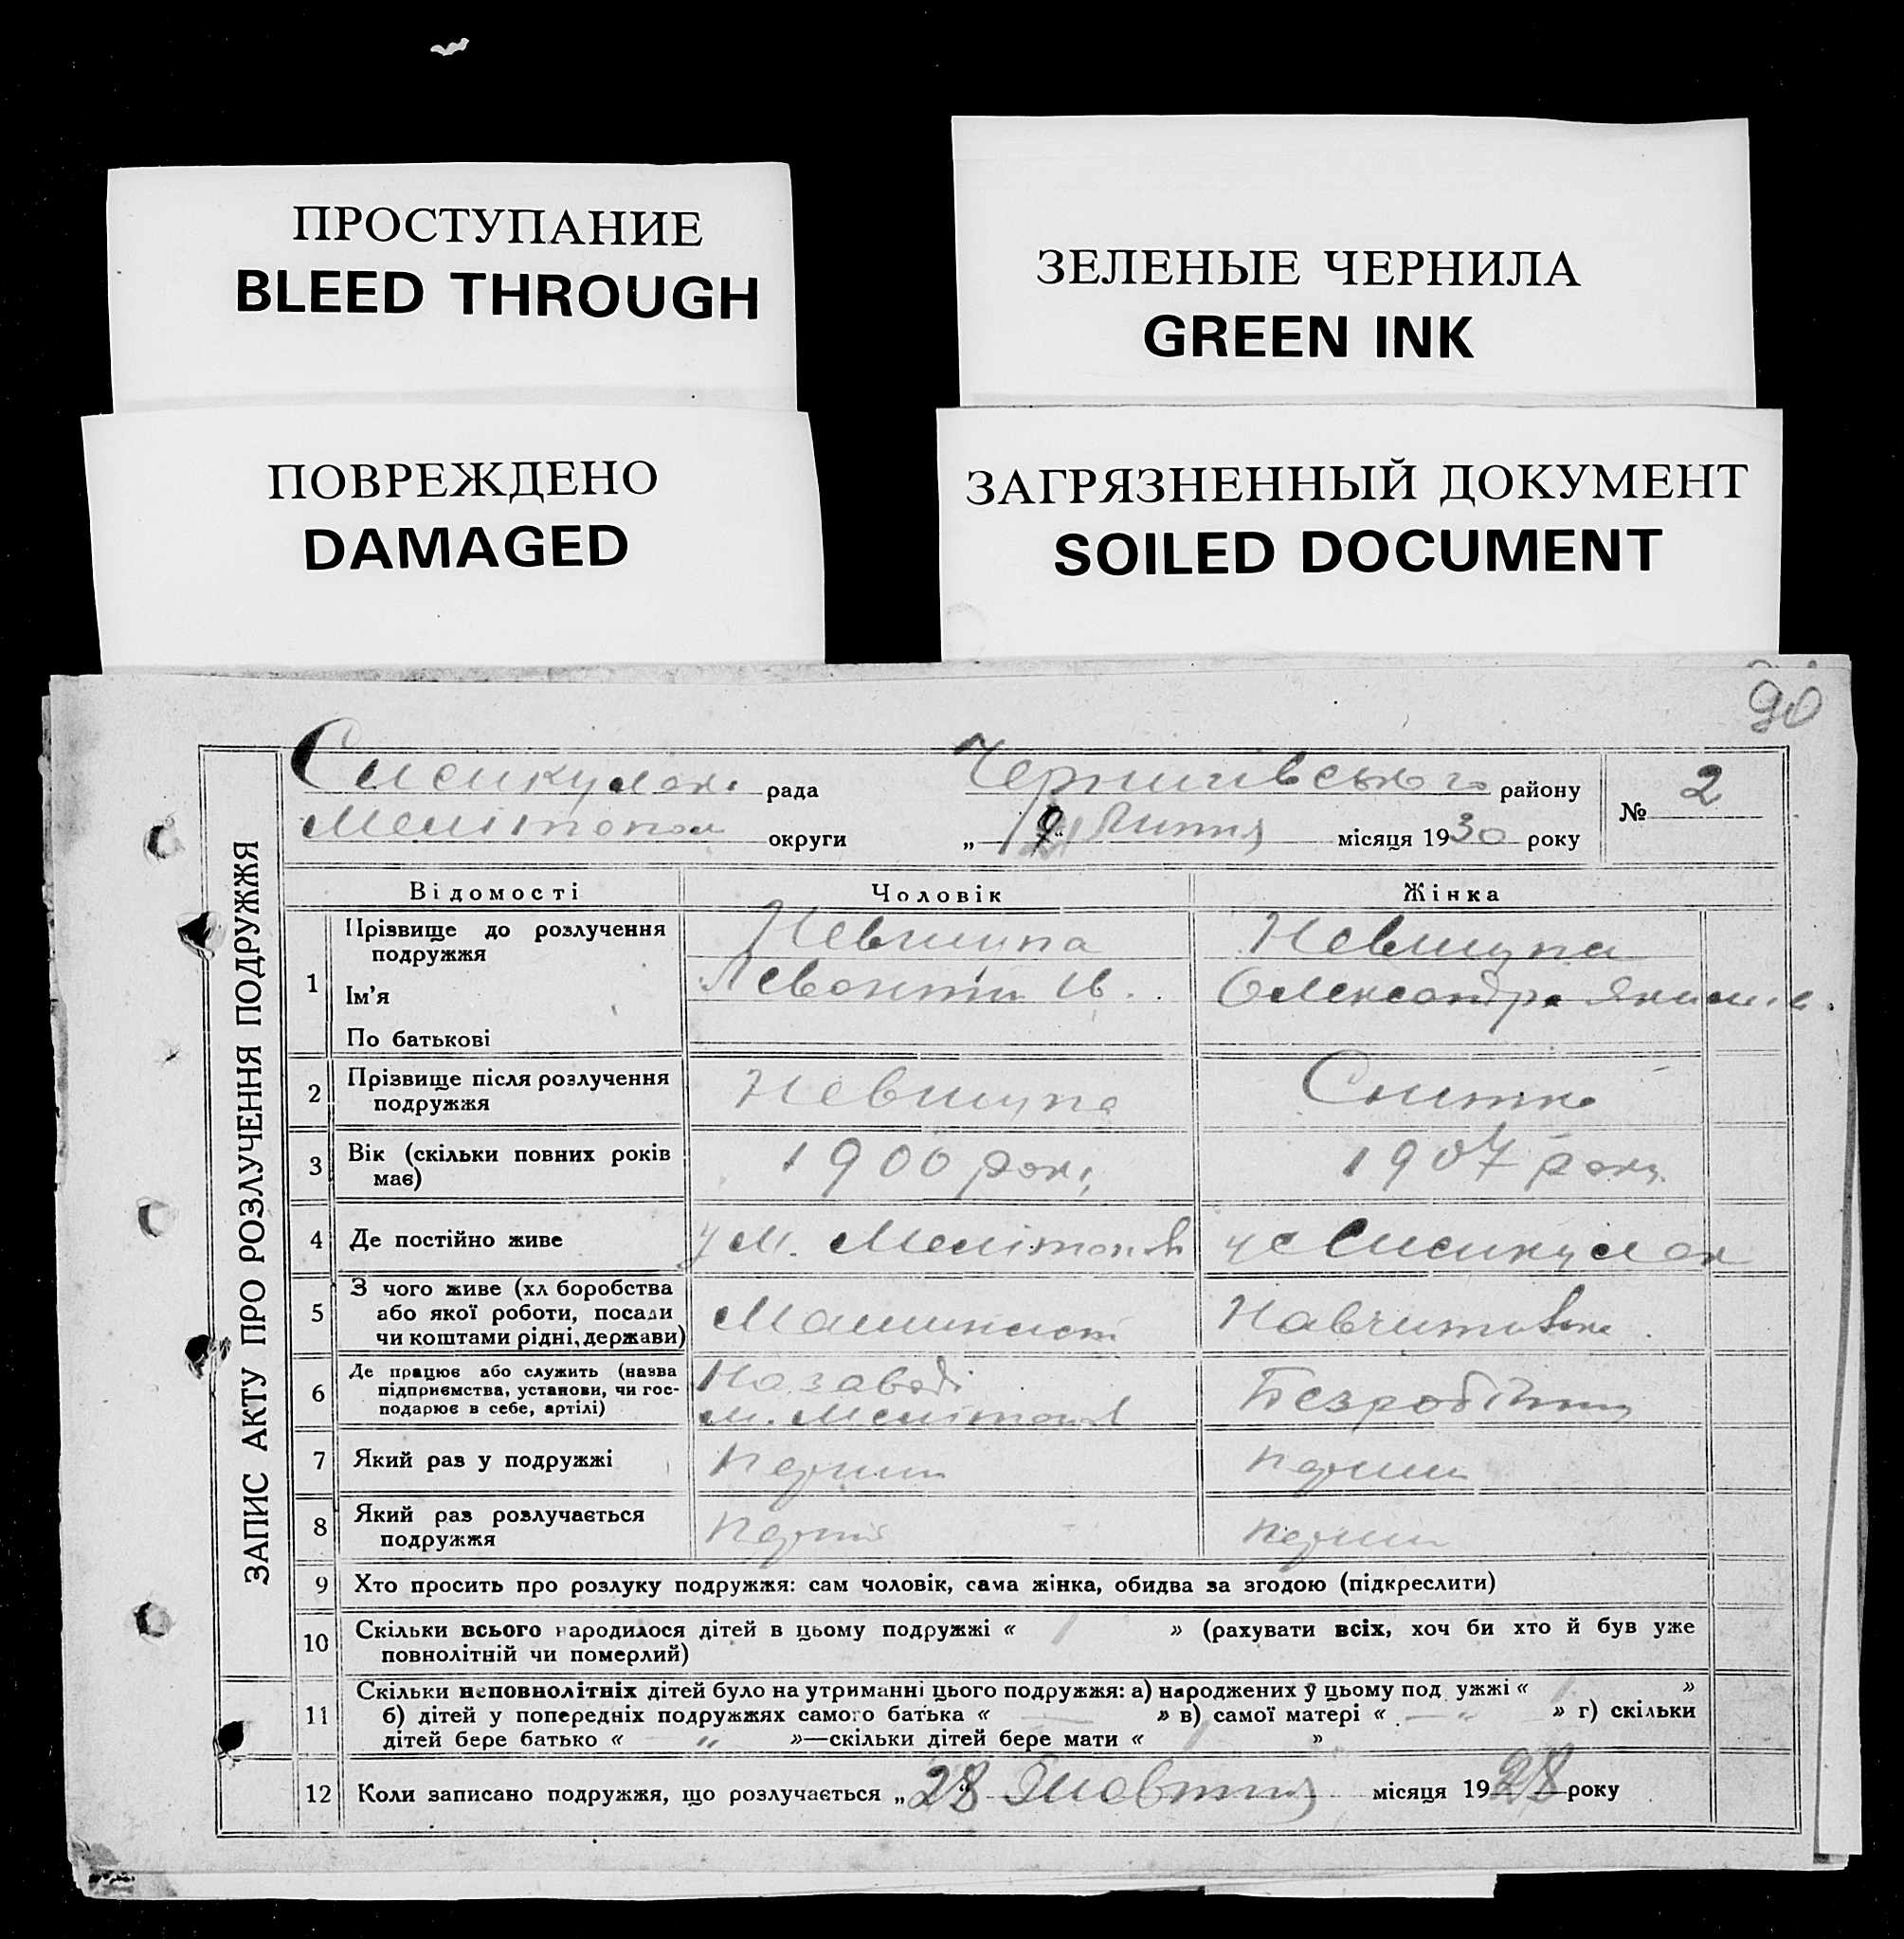 ПРОСТУПАНИЕ
BLEED THROUGH
ЗЕЛЕНЫЕ ЧЕРНИЛА
GREEN INK
ПОВРЕЖДЕНО
DAMAGED
ЗАГРЯЗНЕННЫЙ ДОКУМЕНТ
SOILED DOCUMENT
90
ЗАПИС АКТУ ПРО РОЗЛУЧЕННЯ ПОДРУЖЖЯ
рада Чернигівського району
№ 2
Мелітопол округи „ Липня місяця 1930 року
Відомості Чоловік Жінка
1 Прізвище до розлучення подружжя
Ім'я
По батькові
Олександра
2 Прізвище після розлучення
подружжя
3 Вік (скільки повних років
має)
1900 рок. 1907 року
4 Де постійно живе
у м. Мелітополі
5 З чого живе (хл боробства
або якої роботи, посади
чи коштами рідні, держави)
Машиніст
6 Де працює або служить (назва
підприємства, установи, чи гос-
подарює в себе, артілі)
На заводі
м. Мелітополі
7 Який раз у подружжі
перший перший
8 Який раз розлучається
подружжя
перший перший
9 Хто просить про розлуку подружжя: сам чоловік, сама жінка, обидва за згодою (підкреслити)
10 Скільки всього народилося дітей в цьому подружжі « 1 » (рахувати всіх, хоч би хто й був уже
повнолітній чи померлий)
11 Скільки неповнолітніх дітей було на утриманні цього подружжя: а) народжених у цьому под ужжі « »
б) дітей у попередніх подружжях самого батька « — » в) самої матері « — „ » г) скільки
дітей бере батько « „ »—скільки дітей бере мати « 1 »
12 Коли записано подружжя, що розлучається „28“ Жовтня місяця 1928 року